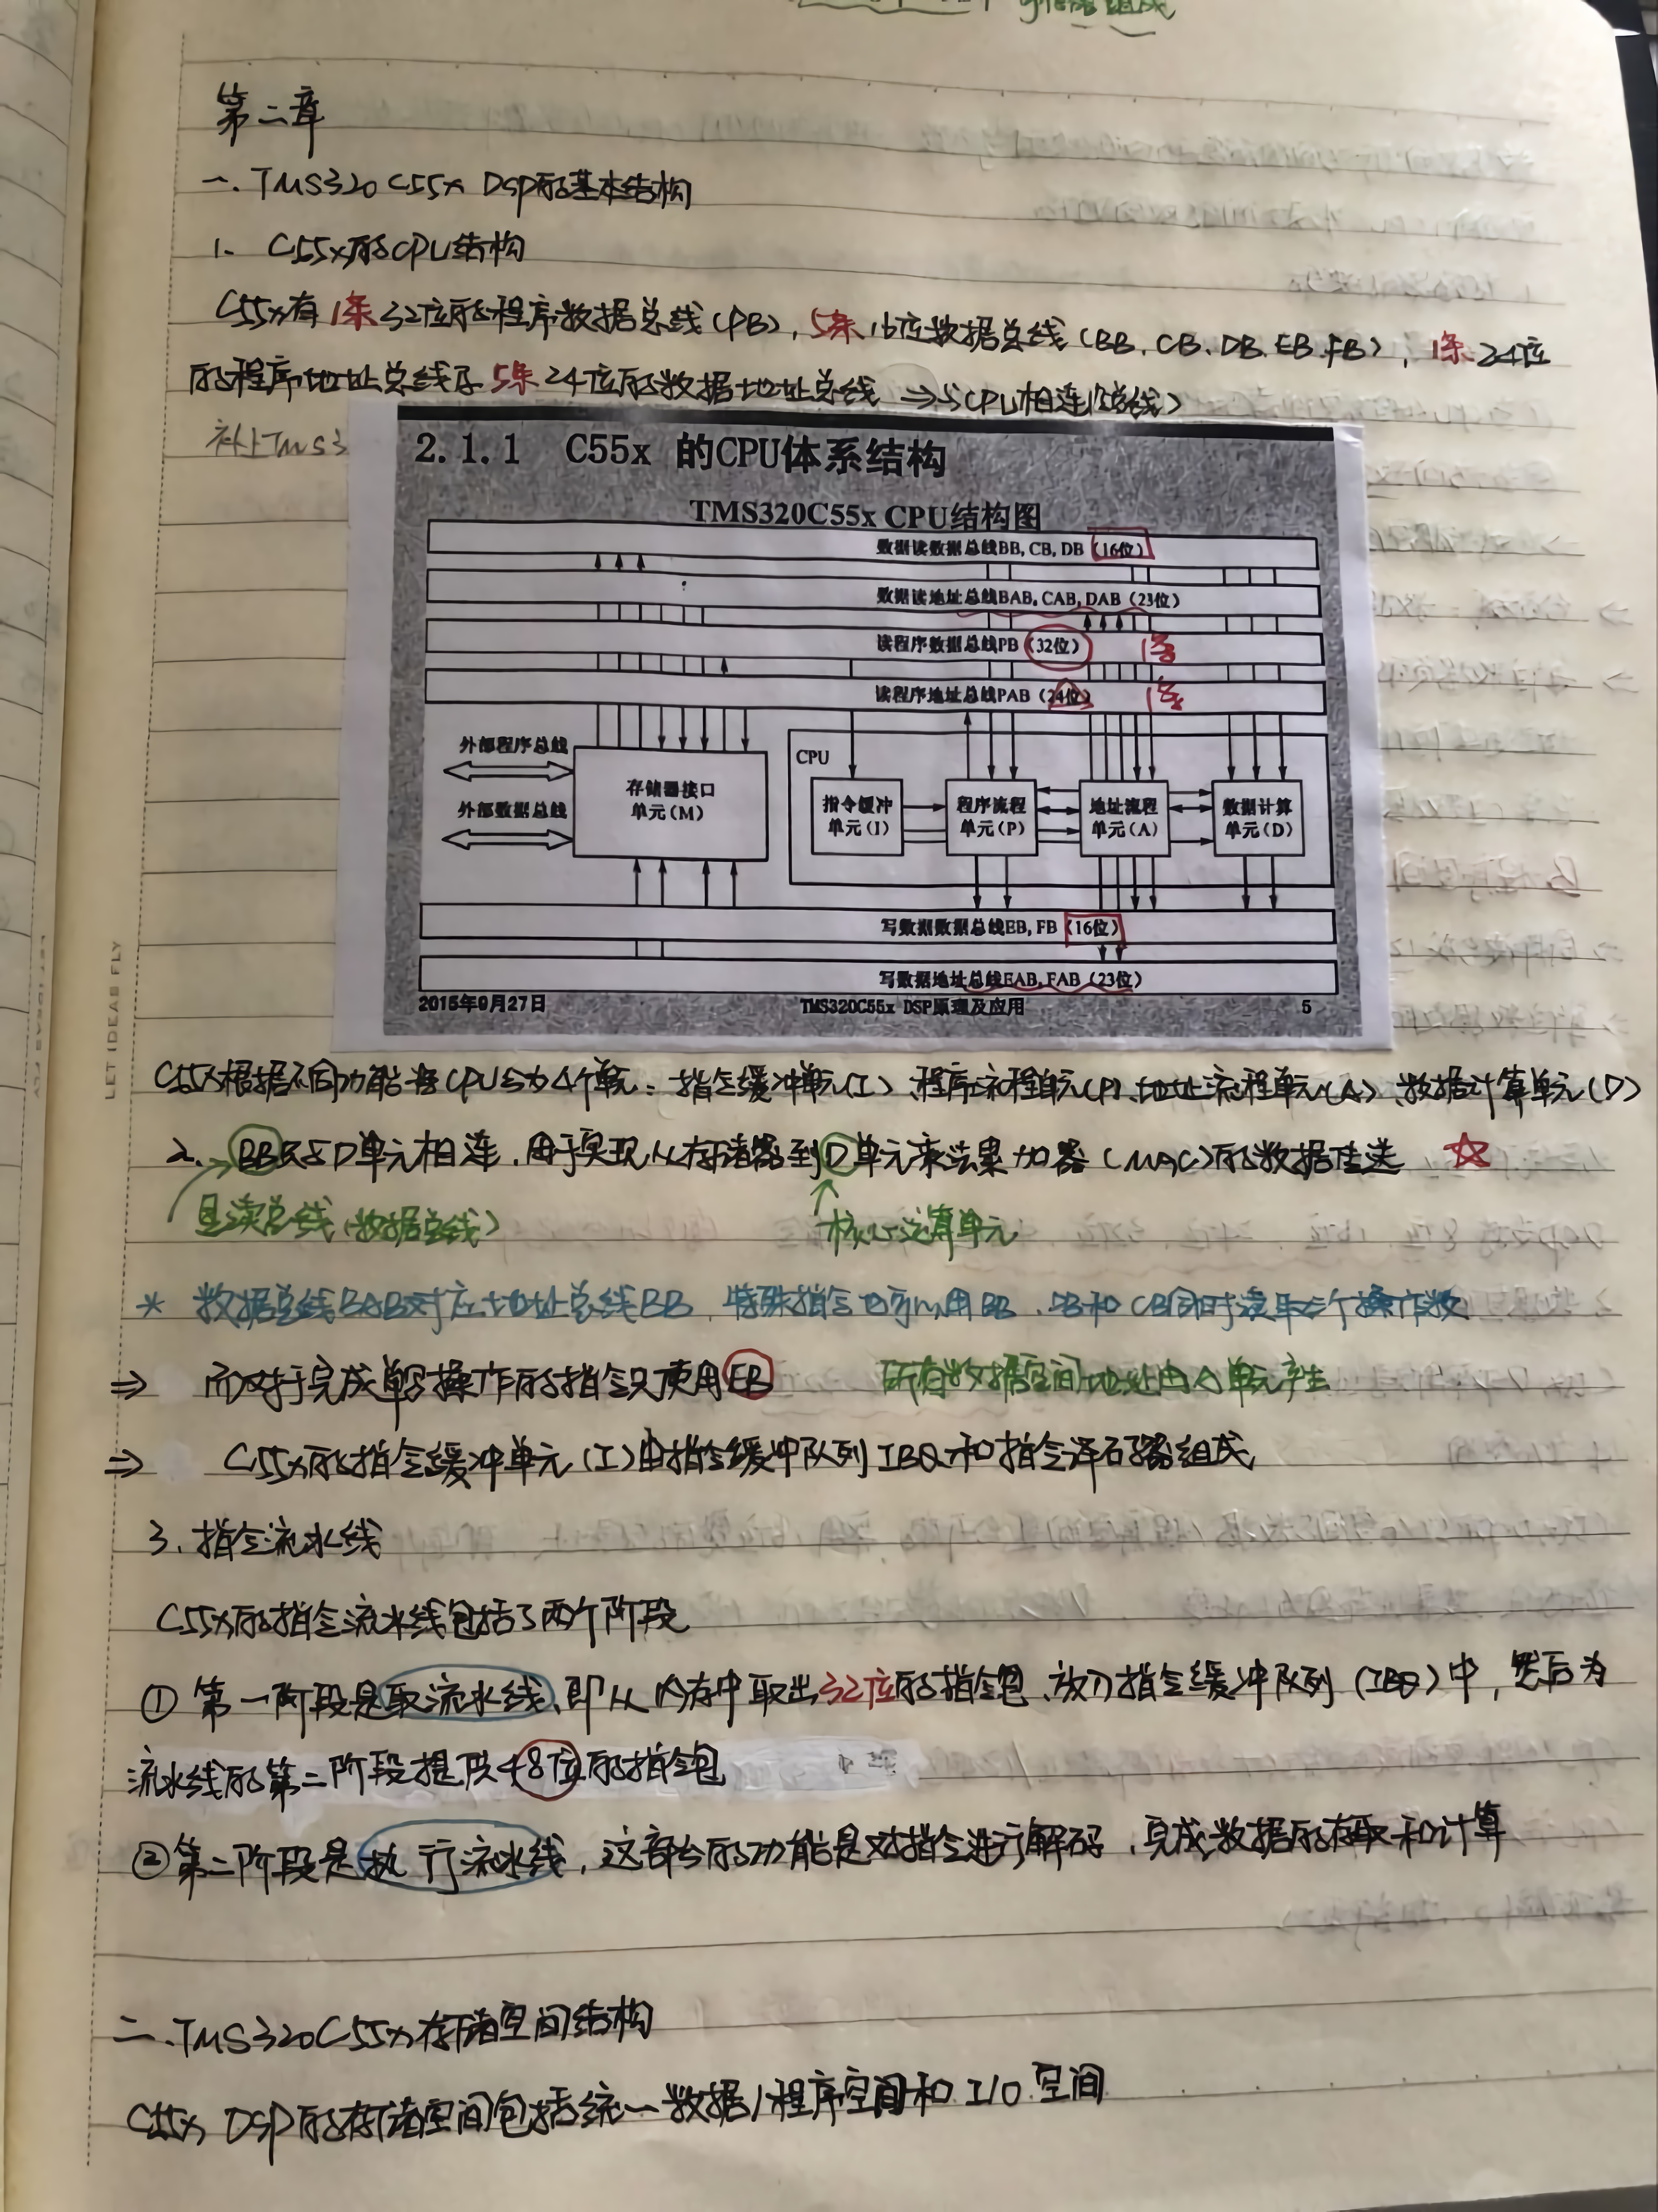 组成
第二章
一.TMS320C55x DSP的基本结构
1. C55x的CPU结构
C55x有1条32位的程序数据总线(PB),5条16位数据总线(BB.CB.DB.EB.FB),1条24位
的程序地址总线及5条24位的数据地址总线 ⇒与CPU相连(总线)
补上TMS3
2.1.1 C55x 的CPU体系结构
TMS320C55x CPU结构图
数据读数据总线BB, CB, DB (16位)
数据读地址总线BAB, CAB, DAB (23位)
读程序数据总线PB (32位) 1条
读程序地址总线PAB (24位) 1条
外部程序总线
外部数据总线
存储器接口
单元(M)
CPU
指令缓冲
单元(I)
程序流程
单元(P)
地址流程
单元(A)
数据计算
单元(D)
写数据数据总线EB, FB (16位)
写数据地址总线EAB, FAB (23位)
2015年9月27日 TMS320C55x DSP原理及应用 5
C55x根据不同功能将CPU分为4个单元:指令缓冲单元(I)、程序流程单元(P)、地址流程单元(A)、数据计算单元(D)
2. BB只与D单元相连,用于实现从存储器到D单元乘法累加器(MAC)的数据传送 ☆
是读总线(数据总线)
核心运算单元
* 数据总线BAB对应地址总线BB,特殊指令也可以用BB、DB和CB同时读取三个操作数
⇒ 而对于完成单写操作的指令只使用EB 所有数据空间地址由A单元产生
⇒ C55x的指令缓冲单元(I)由指令缓冲队列IBQ和指令译码器组成
3、指令流水线
C55x的指令流水线包括了两个阶段
① 第一阶段是取流水线、即从内存中取出32位的指令包、放入指令缓冲队列(IBQ)中,然后为
流水线的第二阶段提供48位的指令包
②第二阶段是执行流水线,这部分的功能是对指令进行解码,完成数据的存取和计算
二.TMS320C55x存储空间结构
C55x DSP的存储空间包括统一数据/程序空间和I/O空间
LET IDEAS FLY